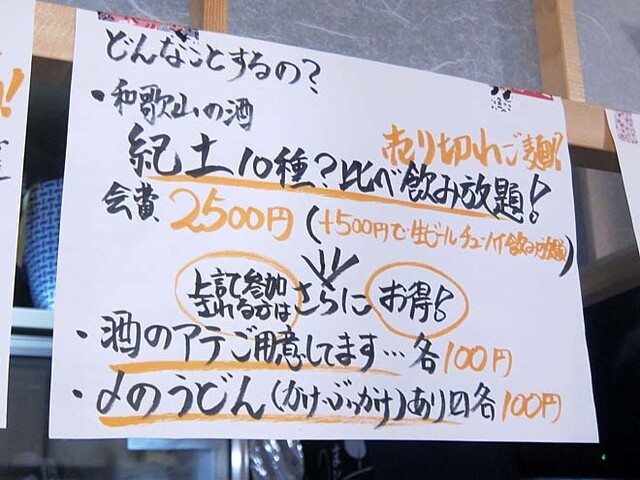 どんなことするの?
・和歌山の酒
売り切れご麺!?
紀土10種?比べ飲み放題!
会費 2500円(+500円で生ビールチューハイ飲み放題)
上記で参加
される方は
さらに お得!
・酒のアテご用意してます…各100円
・〆のうどん(かけ・ぶっかけ)あり〼各100円